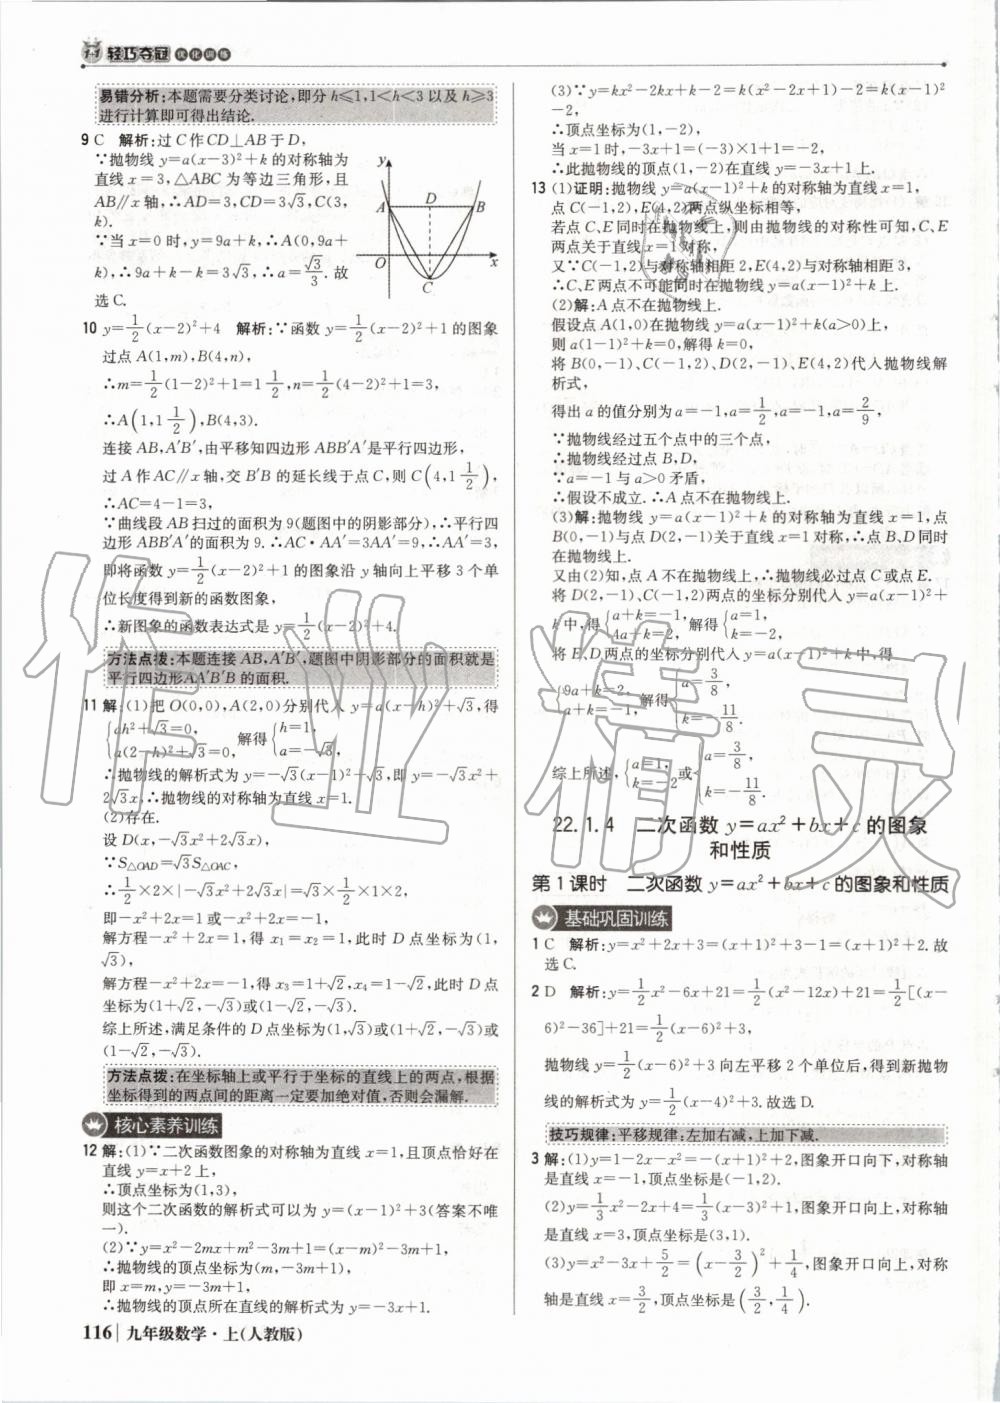 1+1 轻巧夺冠 优化训练
易错分析:本题需要分类讨论,即分 h≤1,1<h<3 以及 h≥3
进行计算即可得出结论.
9 C 解析:过 C 作 CD⊥AB 于 D,
∵抛物线 y=a(x-3)²+k 的对称轴为
直线 x=3,△ABC 为等边三角形,且
AB∥x 轴,∴AD=3,CD=3√3,C(3,
k).
∵当 x=0 时,y=9a+k,∴A(0,9a+
k),∴9a+k-k=3√3,∴a=√3/3.故
选 C.
y
A D B
O x
C
10 y=1/2(x-2)²+4 解析:∵函数 y=1/2(x-2)²+1 的图象
过点 A(1,m),B(4,n),
∴m=1/2(1-2)²+1=1 1/2,n=1/2(4-2)²+1=3,
∴A(1,1 1/2),B(4,3).
连接 AB,A′B′,由平移知四边形 ABB′A′是平行四边形,
过 A 作 AC∥x 轴,交 B′B 的延长线于点 C,则 C(4,1 1/2),
∴AC=4-1=3,
∵曲线段 AB 扫过的面积为 9(题图中的阴影部分),∴平行四
边形 ABB′A′的面积为 9.∴AC·AA′=3AA′=9,∴AA′=3,
即将函数 y=1/2(x-2)²+1 的图象沿 y 轴向上平移 3 个单
位长度得到新的函数图象,
∴新图象的函数表达式是 y=1/2(x-2)²+4.
方法点拨:本题连接 AB,A′B′,题图中阴影部分的面积就是
平行四边形AA′B′B 的面积.
11 解:(1)把 O(0,0),A(2,0)分别代入 y=a(x-h)²+√3,得
{ah²+√3=0, a(2-h)²+√3=0, 解得{h=1, a=-√3,
∴抛物线的解析式为 y=-√3(x-1)²+√3,即 y=-√3x²+
2√3x,∴抛物线的对称轴为直线 x=1.
(2)存在.
设 D(x,-√3x²+2√3x),
∵S△OAD=√3S△OAC,
∴1/2×2×|-√3x²+2√3x|=√3×1/2×1×2,
即-x²+2x=1 或-x²+2x=-1.
解方程-x²+2x=1,得 x₁=x₂=1,此时 D 点坐标为(1,
√3),
解方程-x²+2x=-1,得 x₃=1+√2,x₄=1-√2,此时 D 点
坐标为(1+√2,-√3)或(1-√2,-√3).
综上所述,满足条件的 D 点坐标为(1,√3)或(1+√2,-√3)或
(1-√2,-√3).
方法点拨:在坐标轴上或平行于坐标的直线上的两点,根据
坐标得到的两点间的距离一定要加绝对值,否则会漏解.
核心素养训练
12 解:(1)∵二次函数图象的对称轴为直线 x=1,且顶点恰好在
直线 y=x+2 上,
∴顶点坐标为(1,3),
则这个二次函数的解析式可以为 y=(x-1)²+3(答案不唯
一).
(2)∵y=x²-2mx+m²-3m+1=(x-m)²-3m+1,
∴抛物线的顶点坐标为(m,-3m+1),
即 x=m,y=-3m+1,
∴抛物线的顶点所在直线的解析式为 y=-3x+1.
116 九年级数学·上(人教版)
(3)∵y=kx²-2kx+k-2=k(x²-2x+1)-2=k(x-1)²
-2,
∴顶点坐标为(1,-2),
当 x=1 时,-3x+1=(-3)×1+1=-2,
∴此抛物线的顶点(1,-2)在直线 y=-3x+1 上.
13 (1)证明:抛物线 y=a(x-1)²+k 的对称轴为直线 x=1,
点 C(-1,2),E(4,2)两点纵坐标相等,
若点 C、E 同时在抛物线上,则由抛物线的对称性可知,C、E
两点关于直线 x=1 对称,
又∵C(-1,2)与对称轴相距 2,E(4,2)与对称轴相距 3,
∴C、E 两点不可能同时在抛物线 y=a(x-1)²+k 上.
(2)解:A 点不在抛物线上.
假设点 A(1,0)在抛物线 y=a(x-1)²+k(a>0)上,
则 a(1-1)²+k=0,解得 k=0,
将 B(0,-1)、C(-1,2)、D(2,-1)、E(4,2)代入抛物线解
析式,
得出 a 的值分别为 a=-1,a=1/2,a=-1,a=2/9,
∵抛物线经过五个点中的三个点,
∴抛物线经过点 B,D,
∵a=-1 与 a>0 矛盾,
∴假设不成立.∴A 点不在抛物线上.
(3)解:抛物线 y=a(x-1)²+k 的对称轴为直线 x=1,点
B(0,-1)与点 D(2,-1)关于直线 x=1 对称,∴点 B、D 同时
在抛物线上.
又由(2)知,点 A 不在抛物线上,∴抛物线必过点 C 或点 E.
将 D(2,-1)、C(-1,2)两点的坐标分别代入 y=a(x-1)²+
k 中,得{a+k=-1, 4a+k=2, 解得{a=1, k=-2.
将 E、D 两点的坐标分别代入 y=a(x-1)²+k 中,得
{9a+k=2, a+k=-1, 解得{a=3/8, k=-11/8.
综上所述,{a=1, k=-2 或{a=3/8, k=-11/8.
22.1.4 二次函数 y=ax²+bx+c 的图象
和性质
第 1 课时 二次函数 y=ax²+bx+c 的图象和性质
基础巩固训练
1 C 解析:y=x²+2x+3=(x+1)²+3-1=(x+1)²+2.故
选 C.
2 D 解析:y=1/2x²-6x+21=1/2(x²-12x)+21=1/2[(x-
6)²-36]+21=1/2(x-6)²+3,
抛物线 y=1/2(x-6)²+3 向左平移 2 个单位后,得到新抛物
线的解析式为 y=1/2(x-4)²+3.故选 D.
技巧规律:平移规律:左加右减,上加下减.
3 解:(1)y=1-2x-x²=-(x+1)²+2,图象开口向下,对称轴
是直线 x=-1,顶点坐标是(-1,2).
(2)y=1/3x²-2x+4=1/3(x-3)²+1,图象开口向上,对称轴
是直线 x=3,顶点坐标是(3,1).
(3)y=x²-3x+5/2=(x-3/2)²+1/4,图象开口向上,对称
轴是直线 x=3/2,顶点坐标是(3/2,1/4).
作业精灵